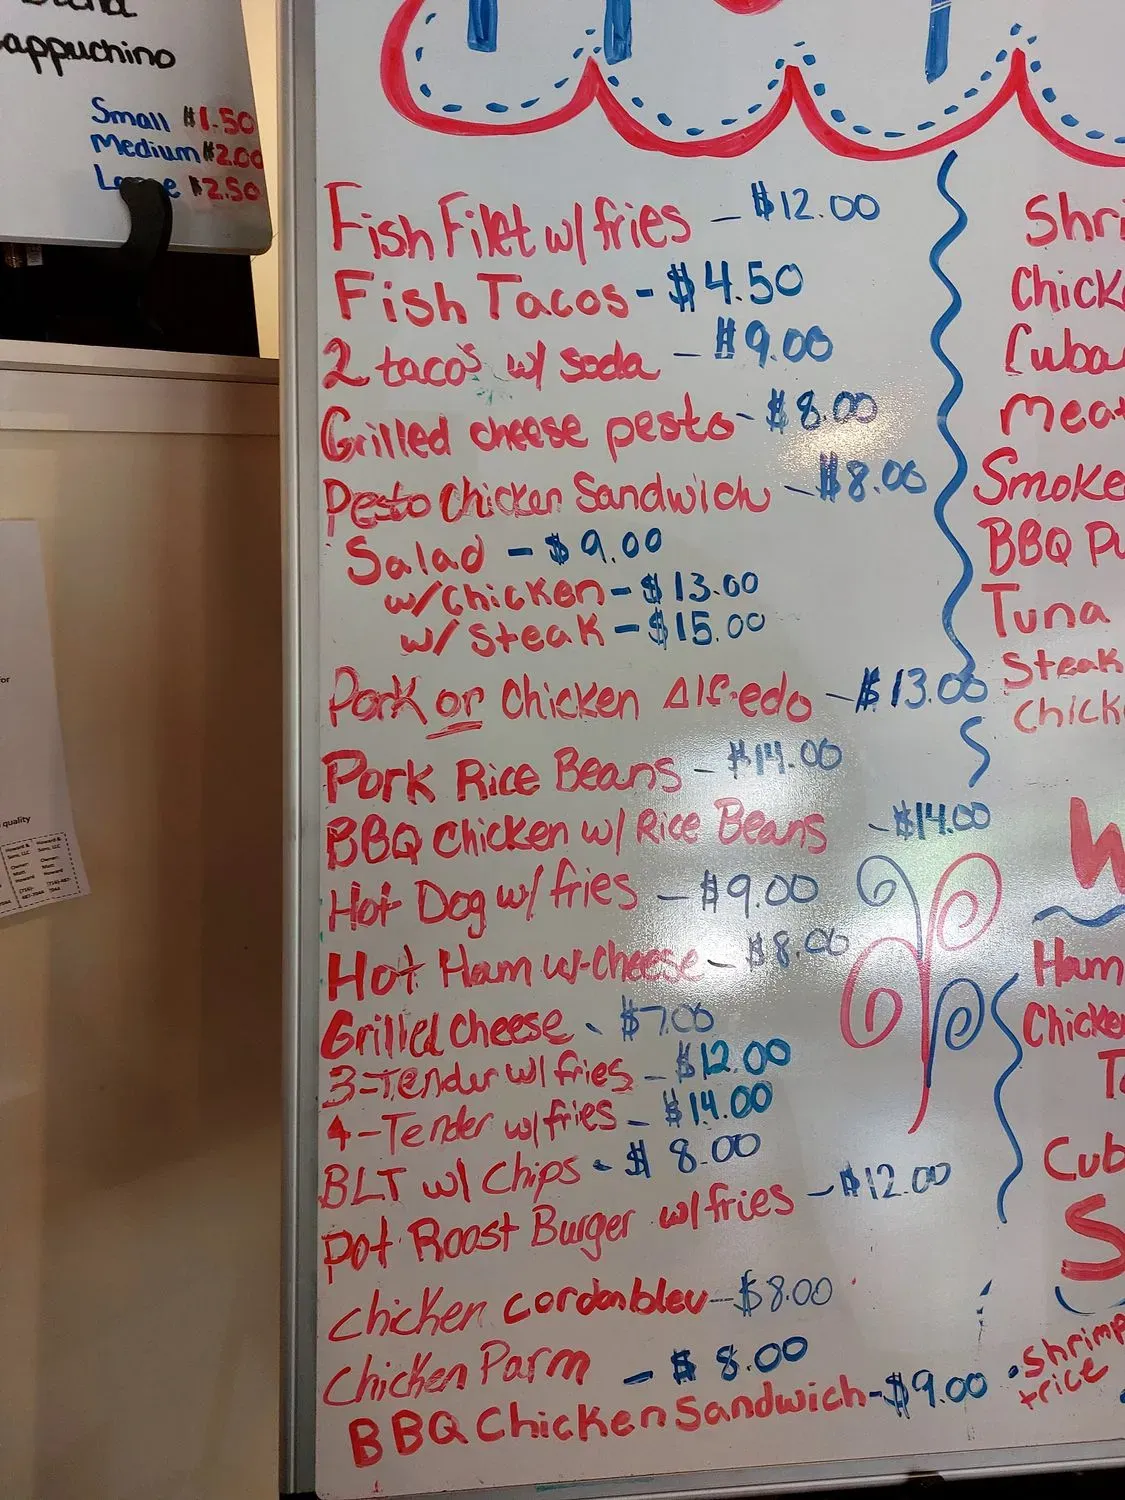 Cappuchino
Small $1.50
Medium $2.00
$2.50
Fish Filet w/ fries - $12.00
Fish Tacos - $4.50
2 tacos w/ soda - $9.00
Grilled cheese pesto - $8.00
Pesto Chicken Sandwich - $8.00
Salad - $9.00
w/ Chicken - $13.00
w/ Steak - $15.00
Pork or Chicken Alfredo - $13.00
Pork Rice Beans - $14.00
BBQ Chicken w/ Rice Beans - $14.00
Hot Dog w/ fries - $9.00
Hot Ham w-cheese - $8.00
Grilled Cheese - $7.00
3-Tender w/ fries - $12.00
4-Tender w/ fries - $14.00
BLT w/ Chips - $8.00
Pot Roast Burger w/ fries - $12.00
chicken cordon bleu - $8.00
Chicken Parm - $8.00
BBQ Chicken Sandwich - $9.00
Shri
Chick
Cuba
Meat
Smoke
BBQ Pu
Tuna
Steak
Chick
W
Ham
Chicken
T
Cub
S
• Shrimp
+ rice
for
quality
Howard & Sons, LLC
Howard & Sons, LLC
Owner: Matt Howard
Owner: Matt Howard